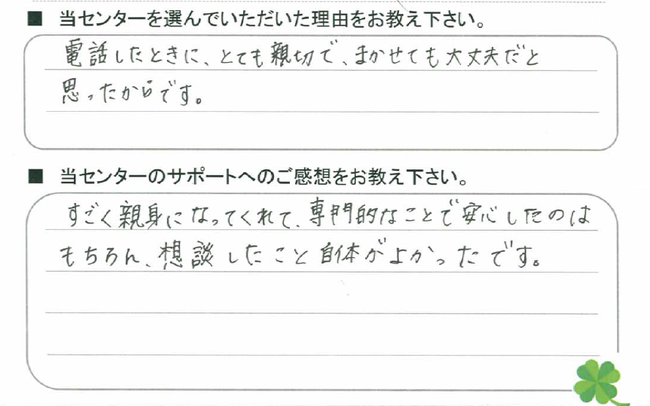 ■ 当センターを選んでいただいた理由をお教え下さい。
電話したときに、とても親切で、まかせても大丈夫だと
思ったからです。
■ 当センターのサポートへのご感想をお教え下さい。
すごく親身になってくれて、専門的なことで安心したのは
もちろん、想談したこと自体がよかったです。